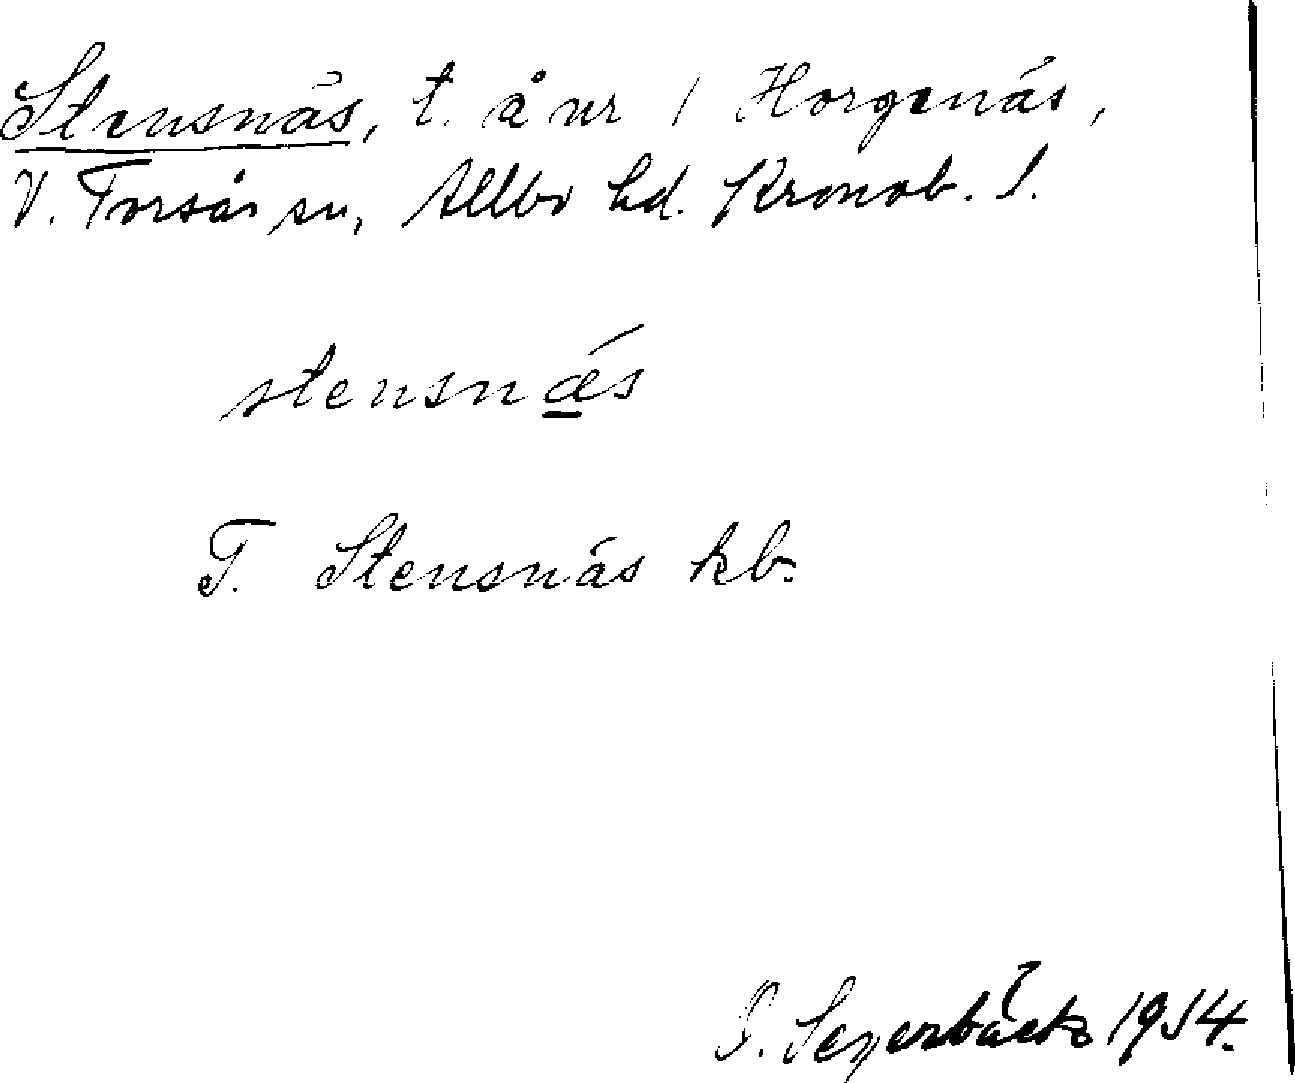 Stensnäs, t. å nr 1 Horgenäs,
V. Torsås sn, Allbo hd. Kronob. l.
stensnǽs
T. Stensnäs kb.
S. Segerbäck 1914.